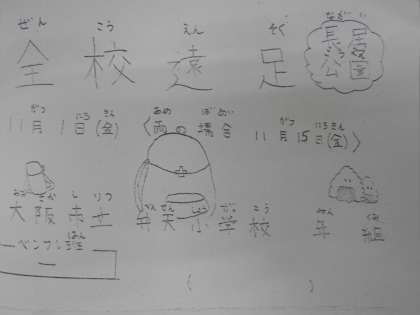 ぜん こう えん そく
全校遠足
長居公園
がつ にち きん あめ ばあい がつ にちきん
11月1日(金)〈雨の場合 11月15日(金)〉
おおさか しりつ べんてんしょうがっこう ねん くみ
大阪市立 弁天小学校 年 組
はん
ペンフレ班
( )